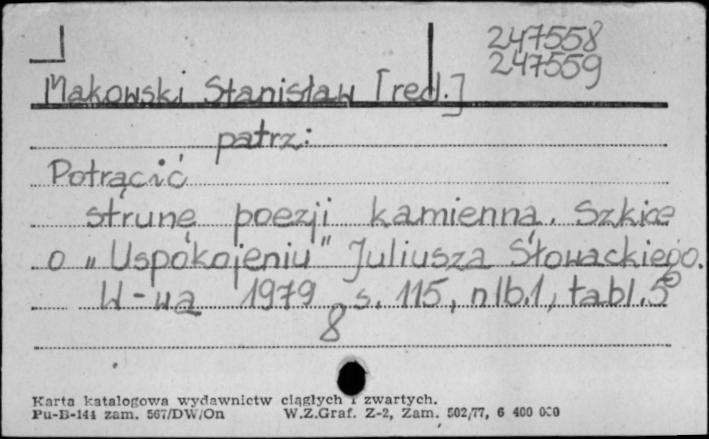 247558
247559
Makowski Stanisław [red.]
patrz:
Potrącić
strunę poezji kamienną. Szkice
o „Uspokojeniu" Juliusza Słowackiego.
W-wa 1979 s. 115, nlb.1, tabl.5
8
Karta katalogowa wydawnictw ciągłych i zwartych.
Pu-B-144 zam. 567/DW/On W.Z.Graf. Z-2, Zam. 502/77, 6 400 000